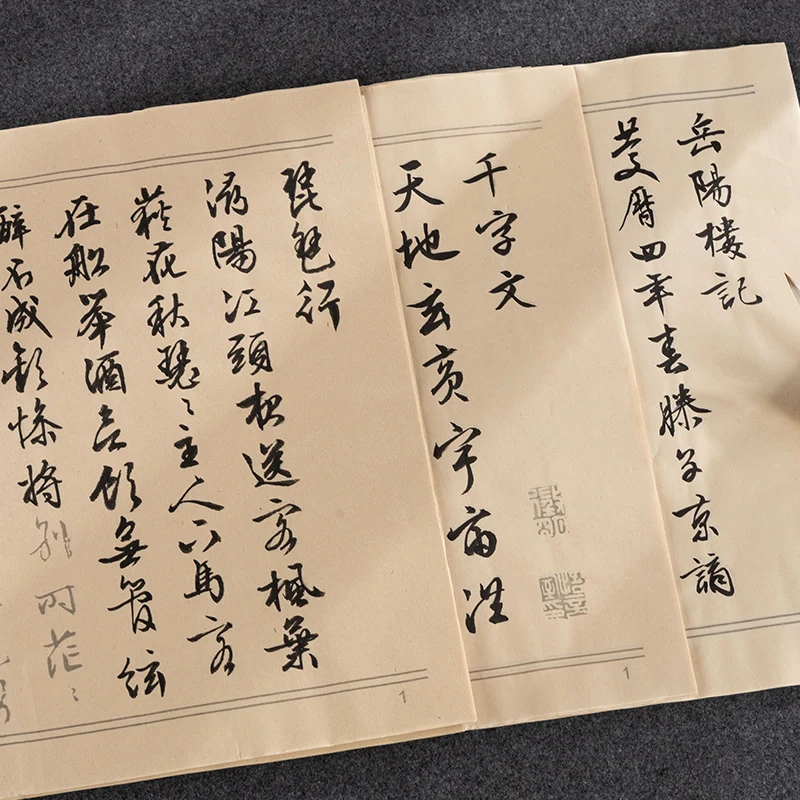 岳陽樓記
慶曆四年春滕子京謫
千字文
天地玄黃宇宙洪
1
琵琶行
潯陽江頭夜送客楓葉
荻花秋瑟〻主人下馬客
在船舉酒欲飲無管絃
醉不成歡慘將別時茫〻
1